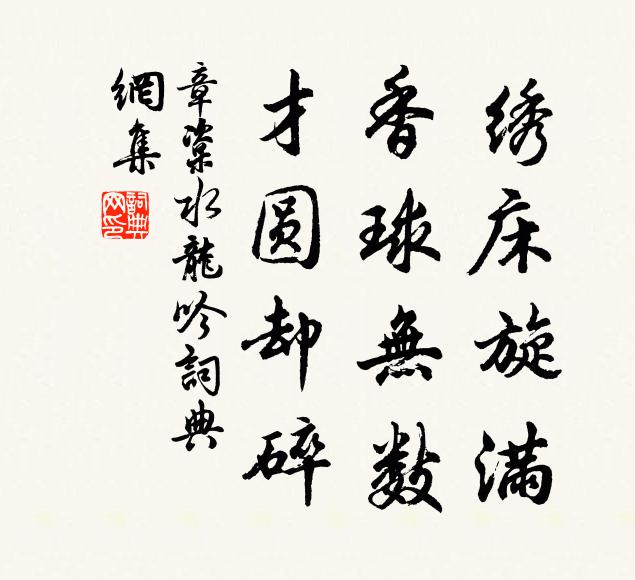 绣床旋满
香球无数
才圆却碎
章楶水龍吟詞典
網集
詞典網印